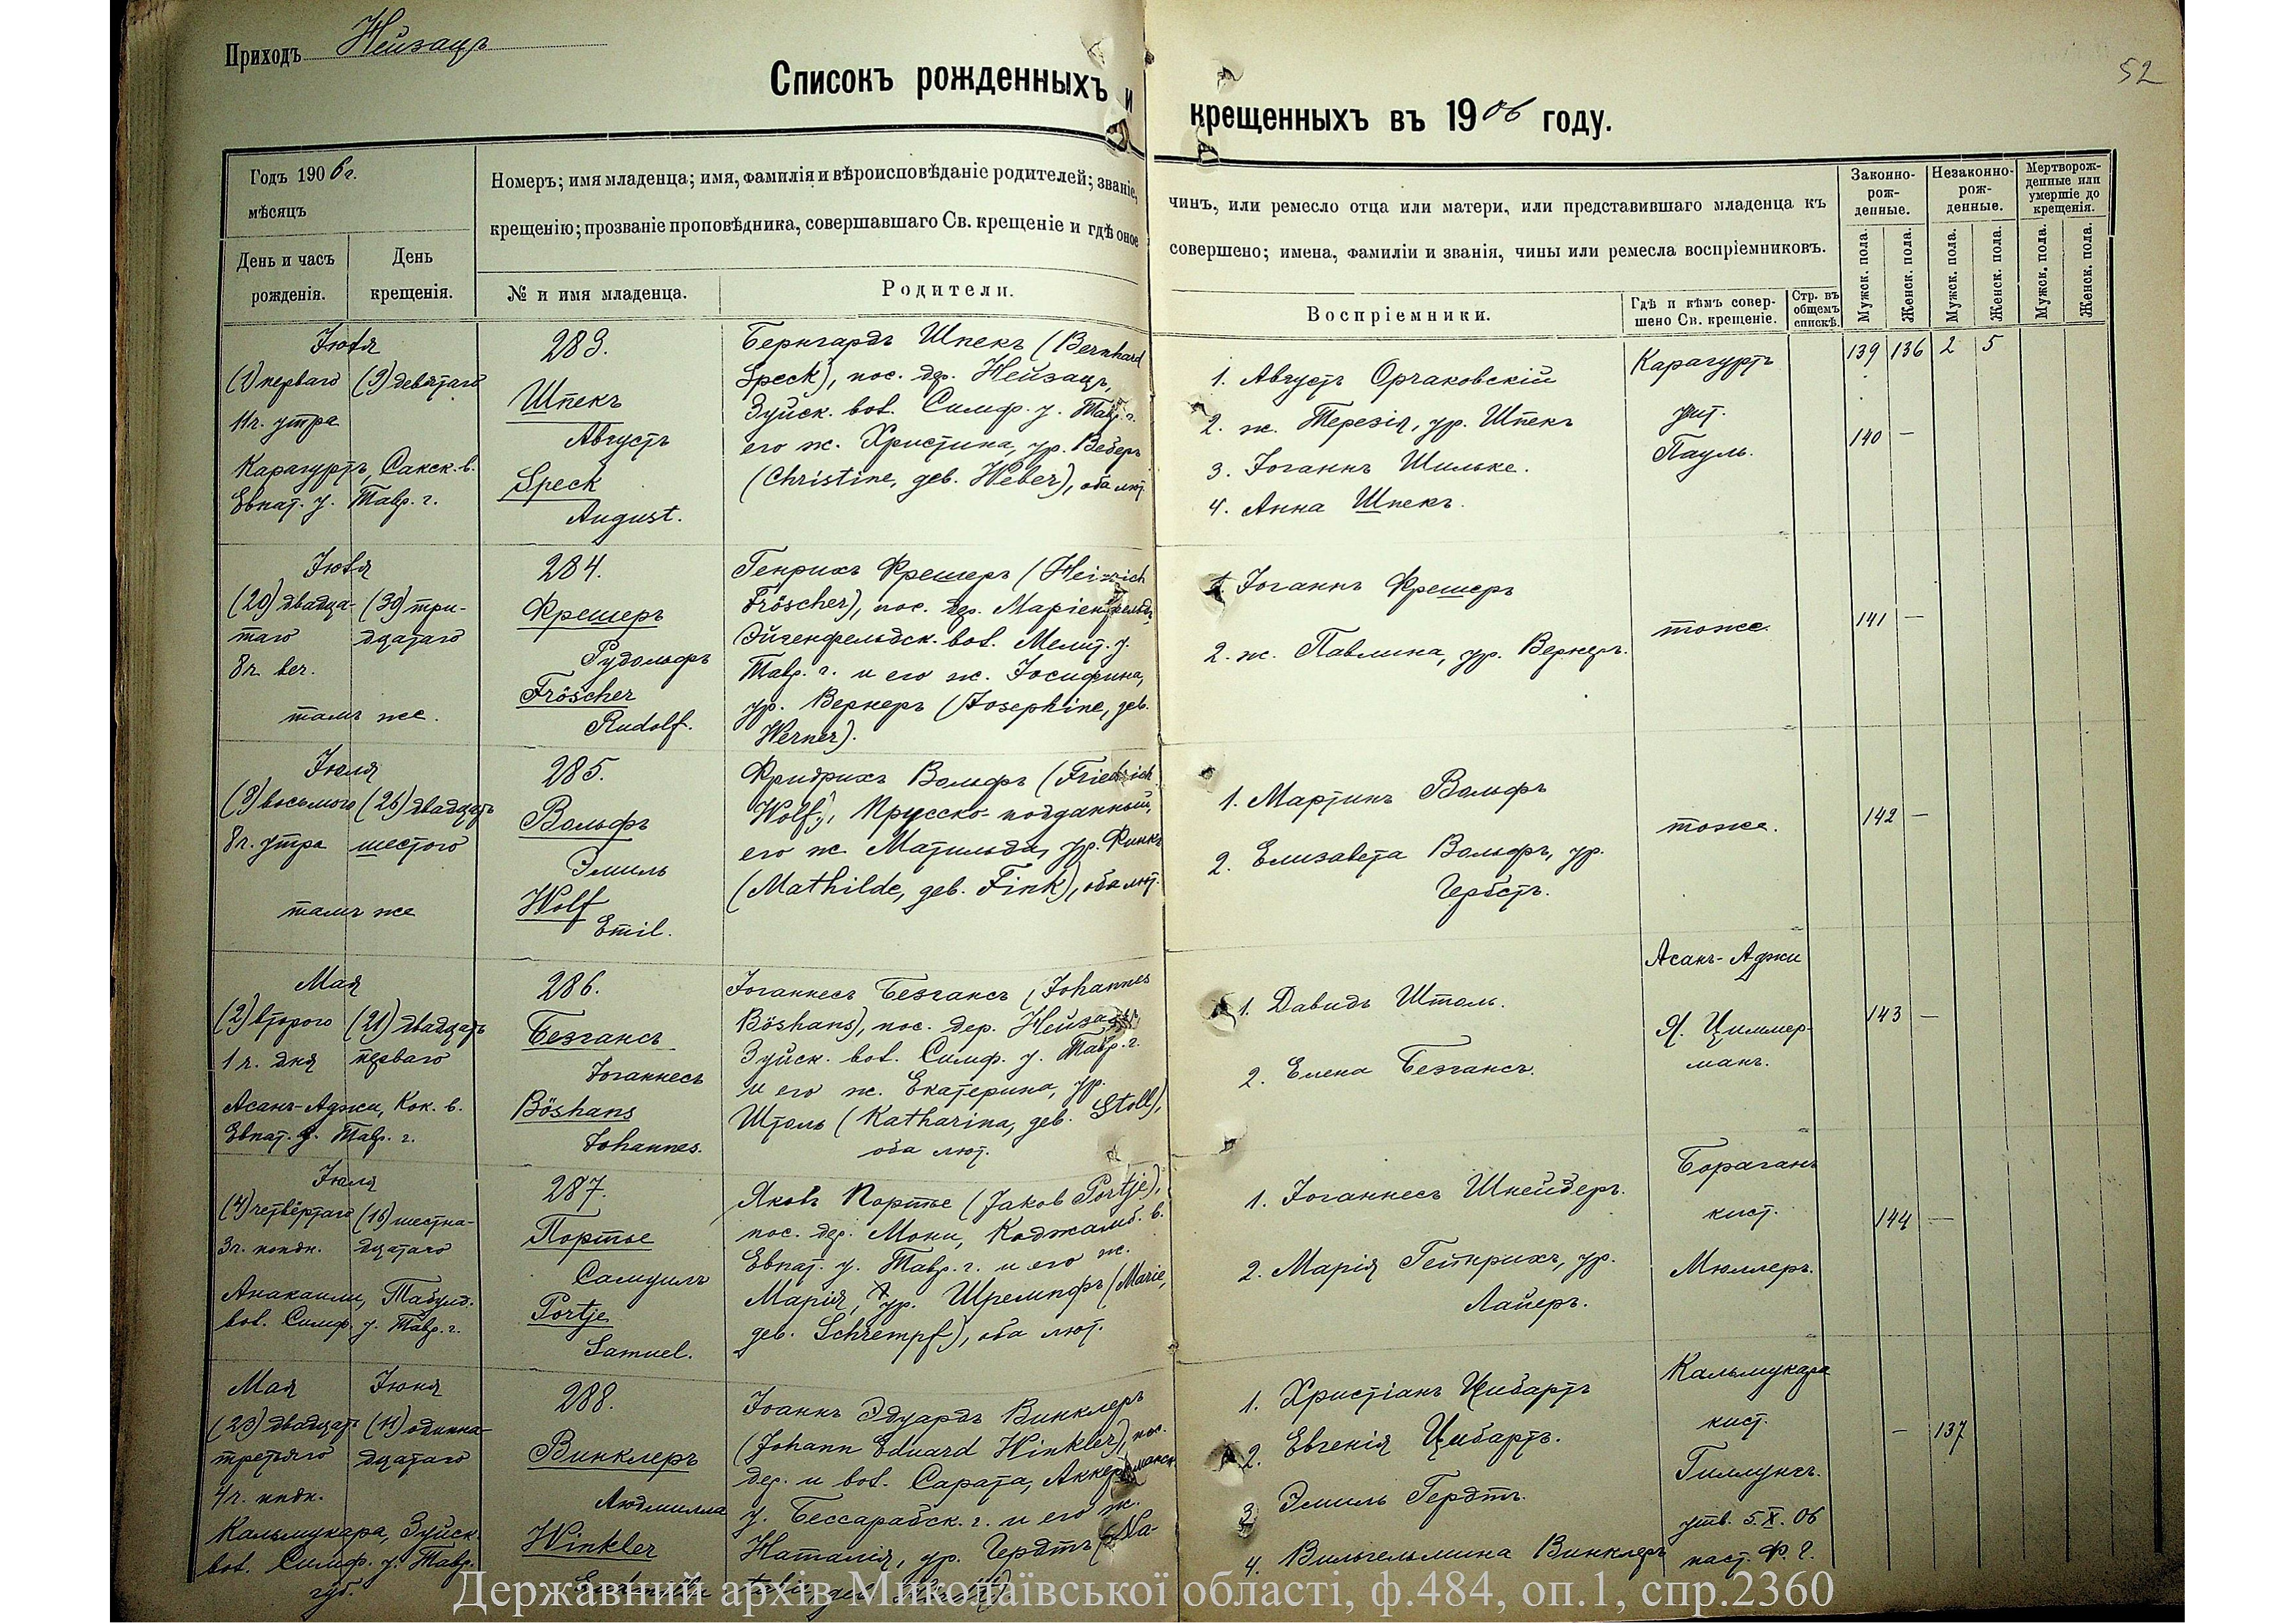 Приходъ Нейзацъ
52
Списокъ рожденныхъ и крещенныхъ въ 1906 году.
Годъ 1906 г.
мѣсяцъ
День и часъ рожденія.
День крещенія.
Номеръ; имя младенца; имя, фамилія и вѣроисповѣданіе родителей; званіе, чинъ, или ремесло отца или матери, или представившаго младенца къ
крещенію; прозваніе проповѣдника, совершавшаго Св. крещеніе и гдѣ оное совершено; имена, фамиліи и званія, чины или ремесла воспріемниковъ.
№ и имя младенца.
Родители.
Воспріемники.
Гдѣ и кѣмъ совер-
шено Св. крещеніе.
Стр. въ
общемъ
спискѣ.
Законно-
рож-
денные.
Незаконно-
рож-
денные.
Мертворож-
денные или
умершіе до
крещенія.
Мужск. пола.
Женск. пола.
Мужск. пола.
Женск. пола.
Мужск. пола.
Женск. пола.
Іюля
(1) перваго (9) девятаго
11 ч. утра
Карагуртъ, Сакск. в.
Евпат. у. Тавр. г.
283.
Шпекъ
Августъ
Speck
August.
Бернгардъ Шпекъ (Bernhard
Speck), пос. дер. Нейзацъ,
Зуйск. вол. Симф. у. Тавр. г.
его ж. Христина, ур. Веберъ
(Christine, geb. Weber), оба лют.
1. Августъ Орчаковскій
2. ж. Терезія, ур. Шпекъ
3. Іоганнъ Шильке.
4. Анна Шпекъ.
Карагуртъ
уч.
Пауль.
139 136 2 5
140 —
Іюля
(20) двадца- (30) три-
таго дцатаго
8 ч. веч.
тамъ же.
284.
Фрешеръ
Рудольфъ
Fröscher
Rudolf.
Генрихъ Фрешеръ (Heinrich
Fröscher), пос. дер. Маріенфельдъ,
Эйгенфельдск. вол. Мелит. у.
Тавр. г. и его ж. Іосифина,
ур. Вернеръ (Josephine, geb.
Werner).
1. Іоганнъ Фрешеръ
2. ж. Павлина, ур. Вернеръ.
тоже.
141 —
Іюля
восьмого (26) двадцать
8 ч. утра шестого
тамъ же
285.
Вольфъ
Эмиль
Wolf
Emil.
Фридрихъ Вольфъ (Friedrich
Wolf), Прусско-подданный,
его ж. Матильда, ур. Финкъ
(Mathilde, geb. Fink), оба лют.
1. Мартинъ Вольфъ
2. Елизавета Вольфъ, ур.
Гербстъ.
тоже.
142 —
Мая
(2) второго (21) двадцать
1 ч. дня перваго
Асанъ-Аджи, Кок. в.
Евпат. у. Тавр. г.
286.
Безгансъ
Іоганнесъ
Böshans
Johannes.
Іоганнесъ Безгансъ (Johannes
Böshans), пос. дер. Нейзацъ
Зуйск. вол. Симф. у. Тавр. г.
и его ж. Екатерина, ур.
Штоль (Katharina, geb. Stoll),
оба лют.
1. Давидъ Штоль.
2. Елена Безгансъ.
Асанъ-Аджи
Я. Циммер-
манъ.
143 —
Іюля
(4) четвёртаго (16) шестна-
3 ч. попдн. дцатаго
Анакаши, Табулд.
вол. Симф. у. Тавр. г.
287.
Портье
Самуилъ
Portje
Samuel.
Яковъ Портье (Jakob Portje),
пос. дер. Мони, Коджамб. в.
Евпат. у. Тавр. г. и его ж.
Марія, ур. Шремпфъ (Marie,
geb. Schrempf), оба лют.
1. Іоганнесъ Шнейдеръ.
2. Марія Гейнрихъ, ур.
Лайеръ.
Бораганъ
кист.
Мюллеръ.
144 —
Мая Іюня
(23) двадцать (11) одинна-
третьяго дцатаго
4 ч. ппдн.
Кальмукара, Зуйск.
вол. Симф. у. Тавр.
губ.
288.
Винклеръ
Людмилла
Winkler
Іоаннъ Эдуардъ Винклеръ
(Johann Eduard Winkler), пос.
дер. и вол. Сарата, Аккерманск.
у. Бессарабск. г. и его ж.
Наталія, ур. Гердтъ (Na-
1. Христіанъ Цибартъ
2. Евгенія Цибартъ.
3. Эмиль Гердтъ.
4. Вильгельмина Винклеръ
Кальмукара
кист.
Гиллунгъ.
утв. 5.X.06
паст. Ф. Г.
— 137
Державний архів Миколаївської області, ф.484, оп.1, спр.2360